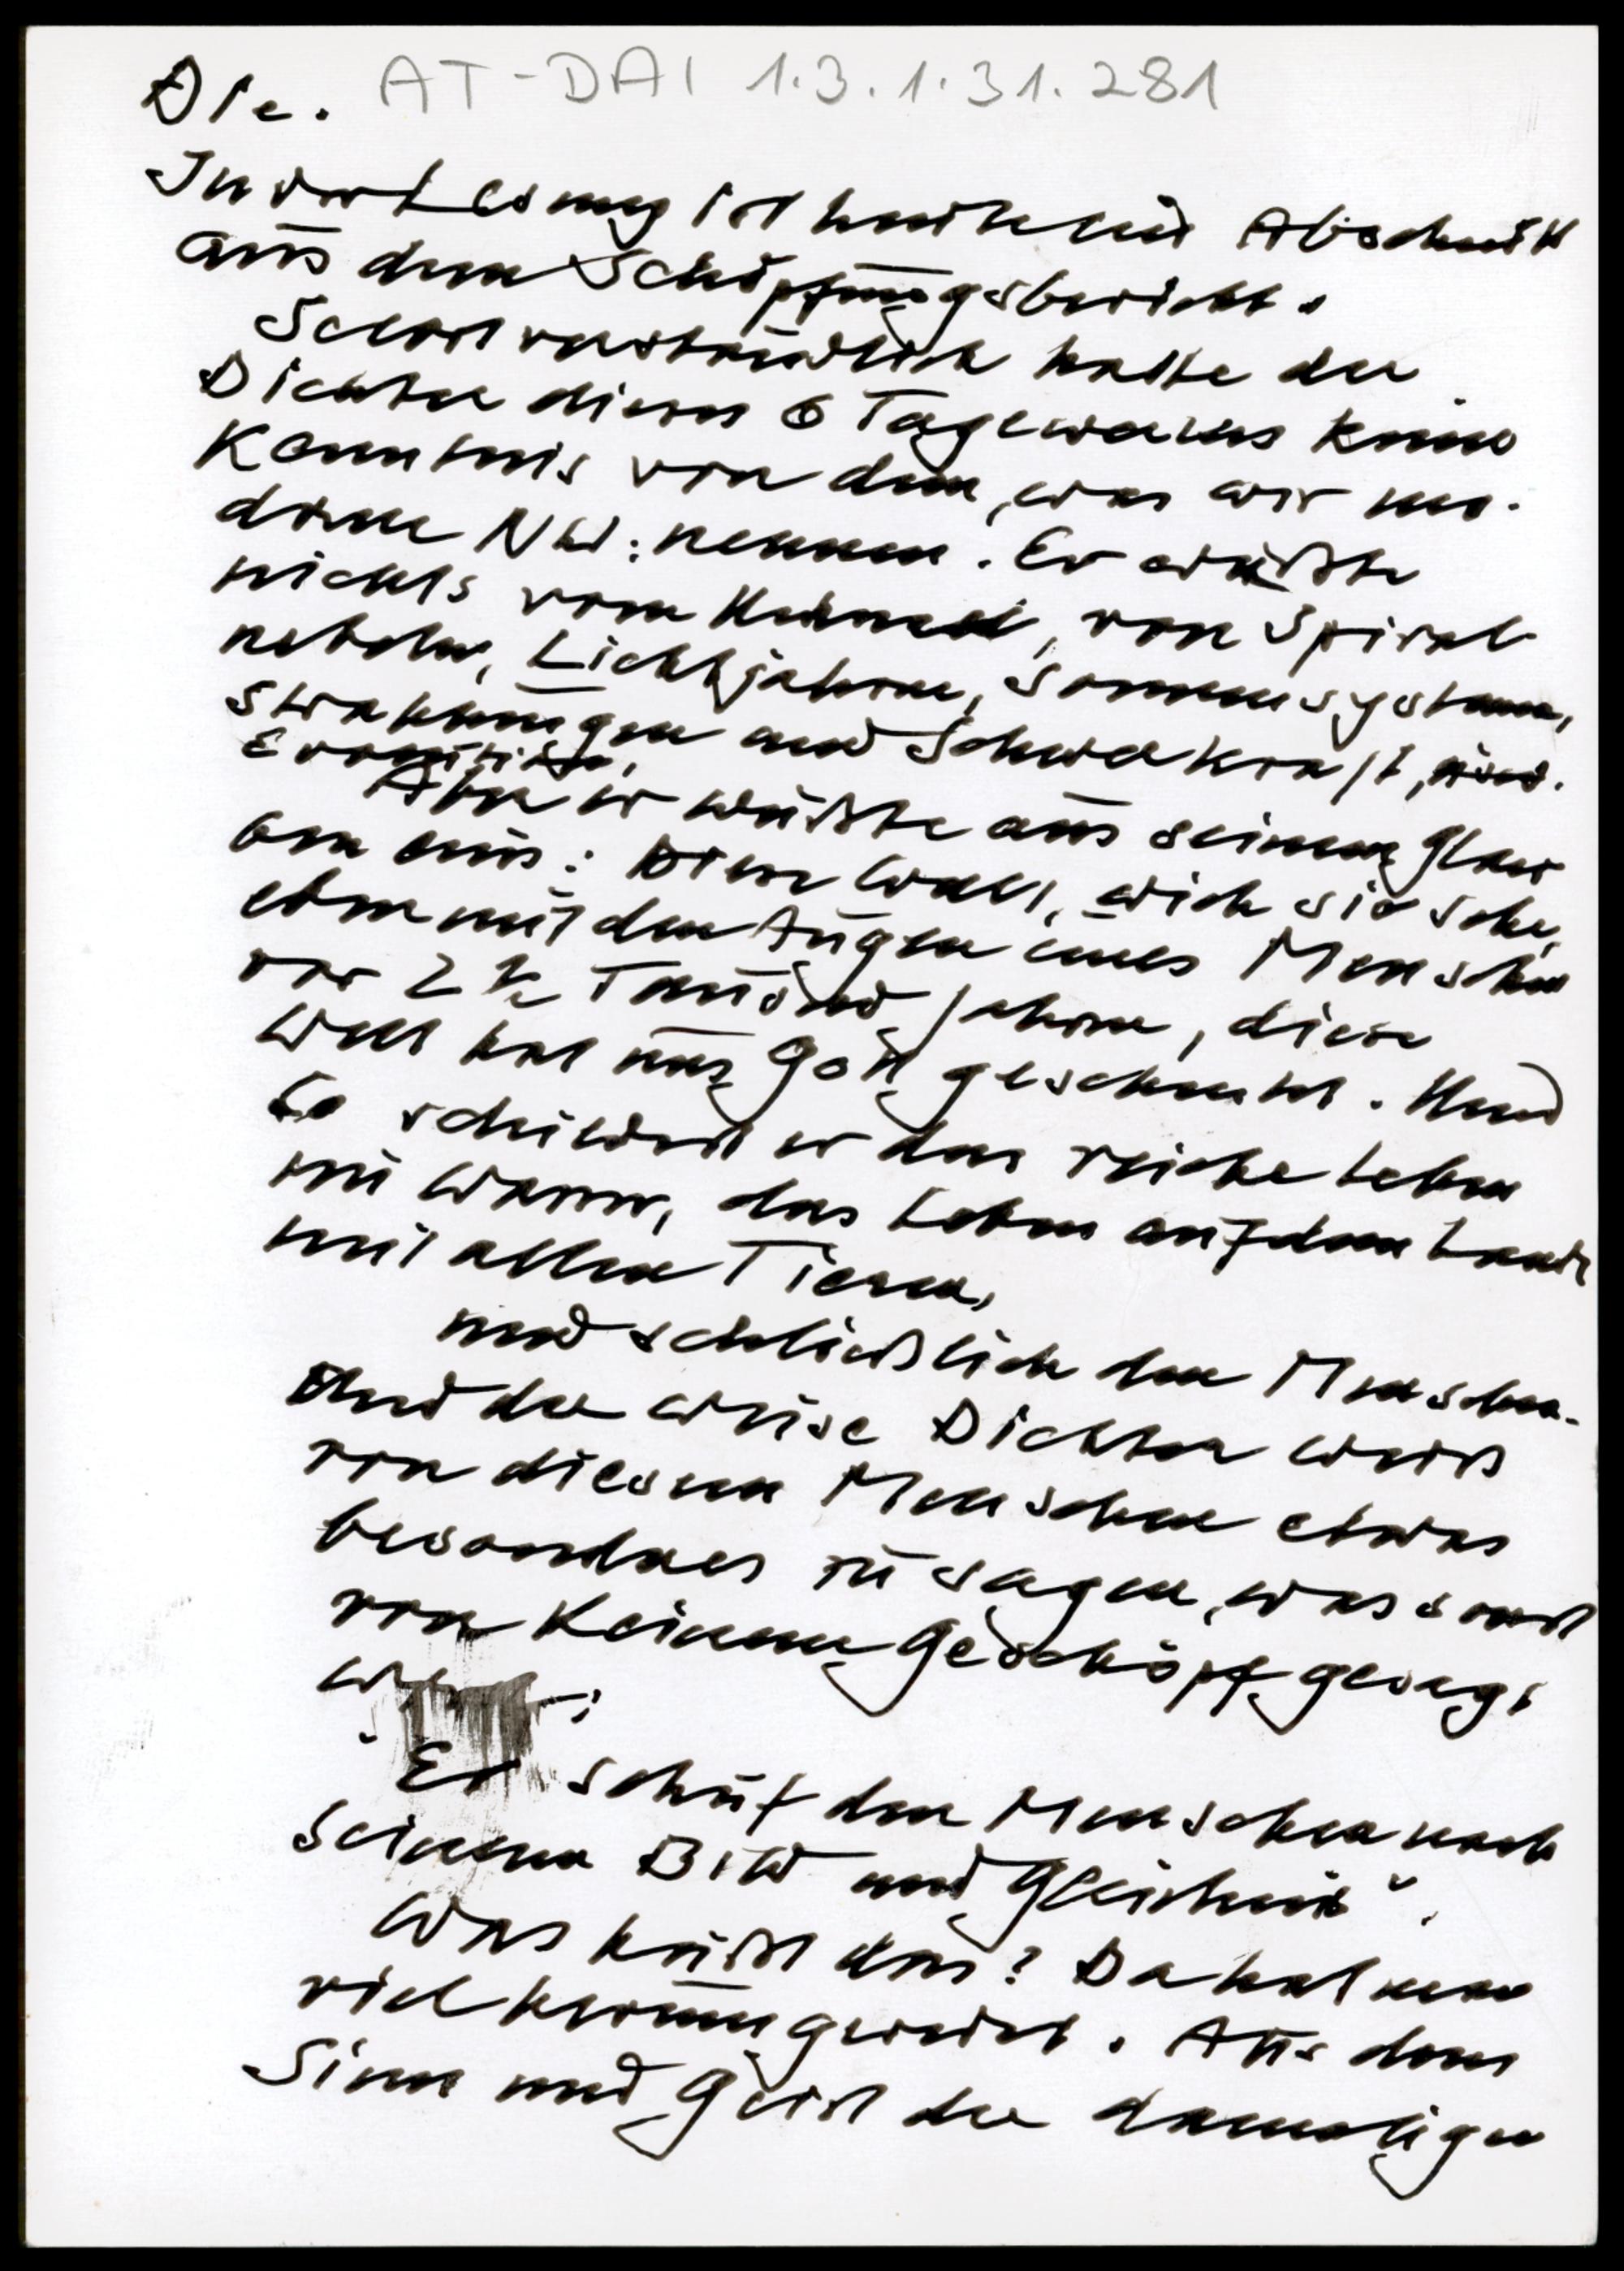 Die. AT-DAI 1.3.1.31.281
In der Lesung ist heute ein Abschnitt
aus dem Schöpfungsbericht.
Selbstverständlich hatte der
Dichter dieses 6 Tagewerkes keine
Kenntnis von dem, was wir mo-
derne NW: nennen. Er wußte
nichts vom Urknall, von Spiral-
nebeln, Lichtjahren, Sonnensystemen,
Strahlungen und Schwerkraft, usw.
Evolution,
Aber er wußte aus seinem Glau
ben eins: Diese Welt, wie ich sie sehe,
eben mit den Augen eines Menschen
vor 2 ½ Tausend Jahren, diese
Welt hat uns Gott geschenkt. Und
so schildert er das reiche Leben
im Wasser, das Leben auf dem Lande
mit allen Tieren,
und schließlich den Menschen.
Und der weise Dichter weiß
von diesem Menschen etwas
besonderes zu sagen, was sonst
von keinem Geschöpf gesagt
"Er schuf den Menschen nach
seinem Bild und Gleichnis".
Was heißt das? Da hat man
viel herumgerätselt. Aus dem
Sinn und Geist der damaligen